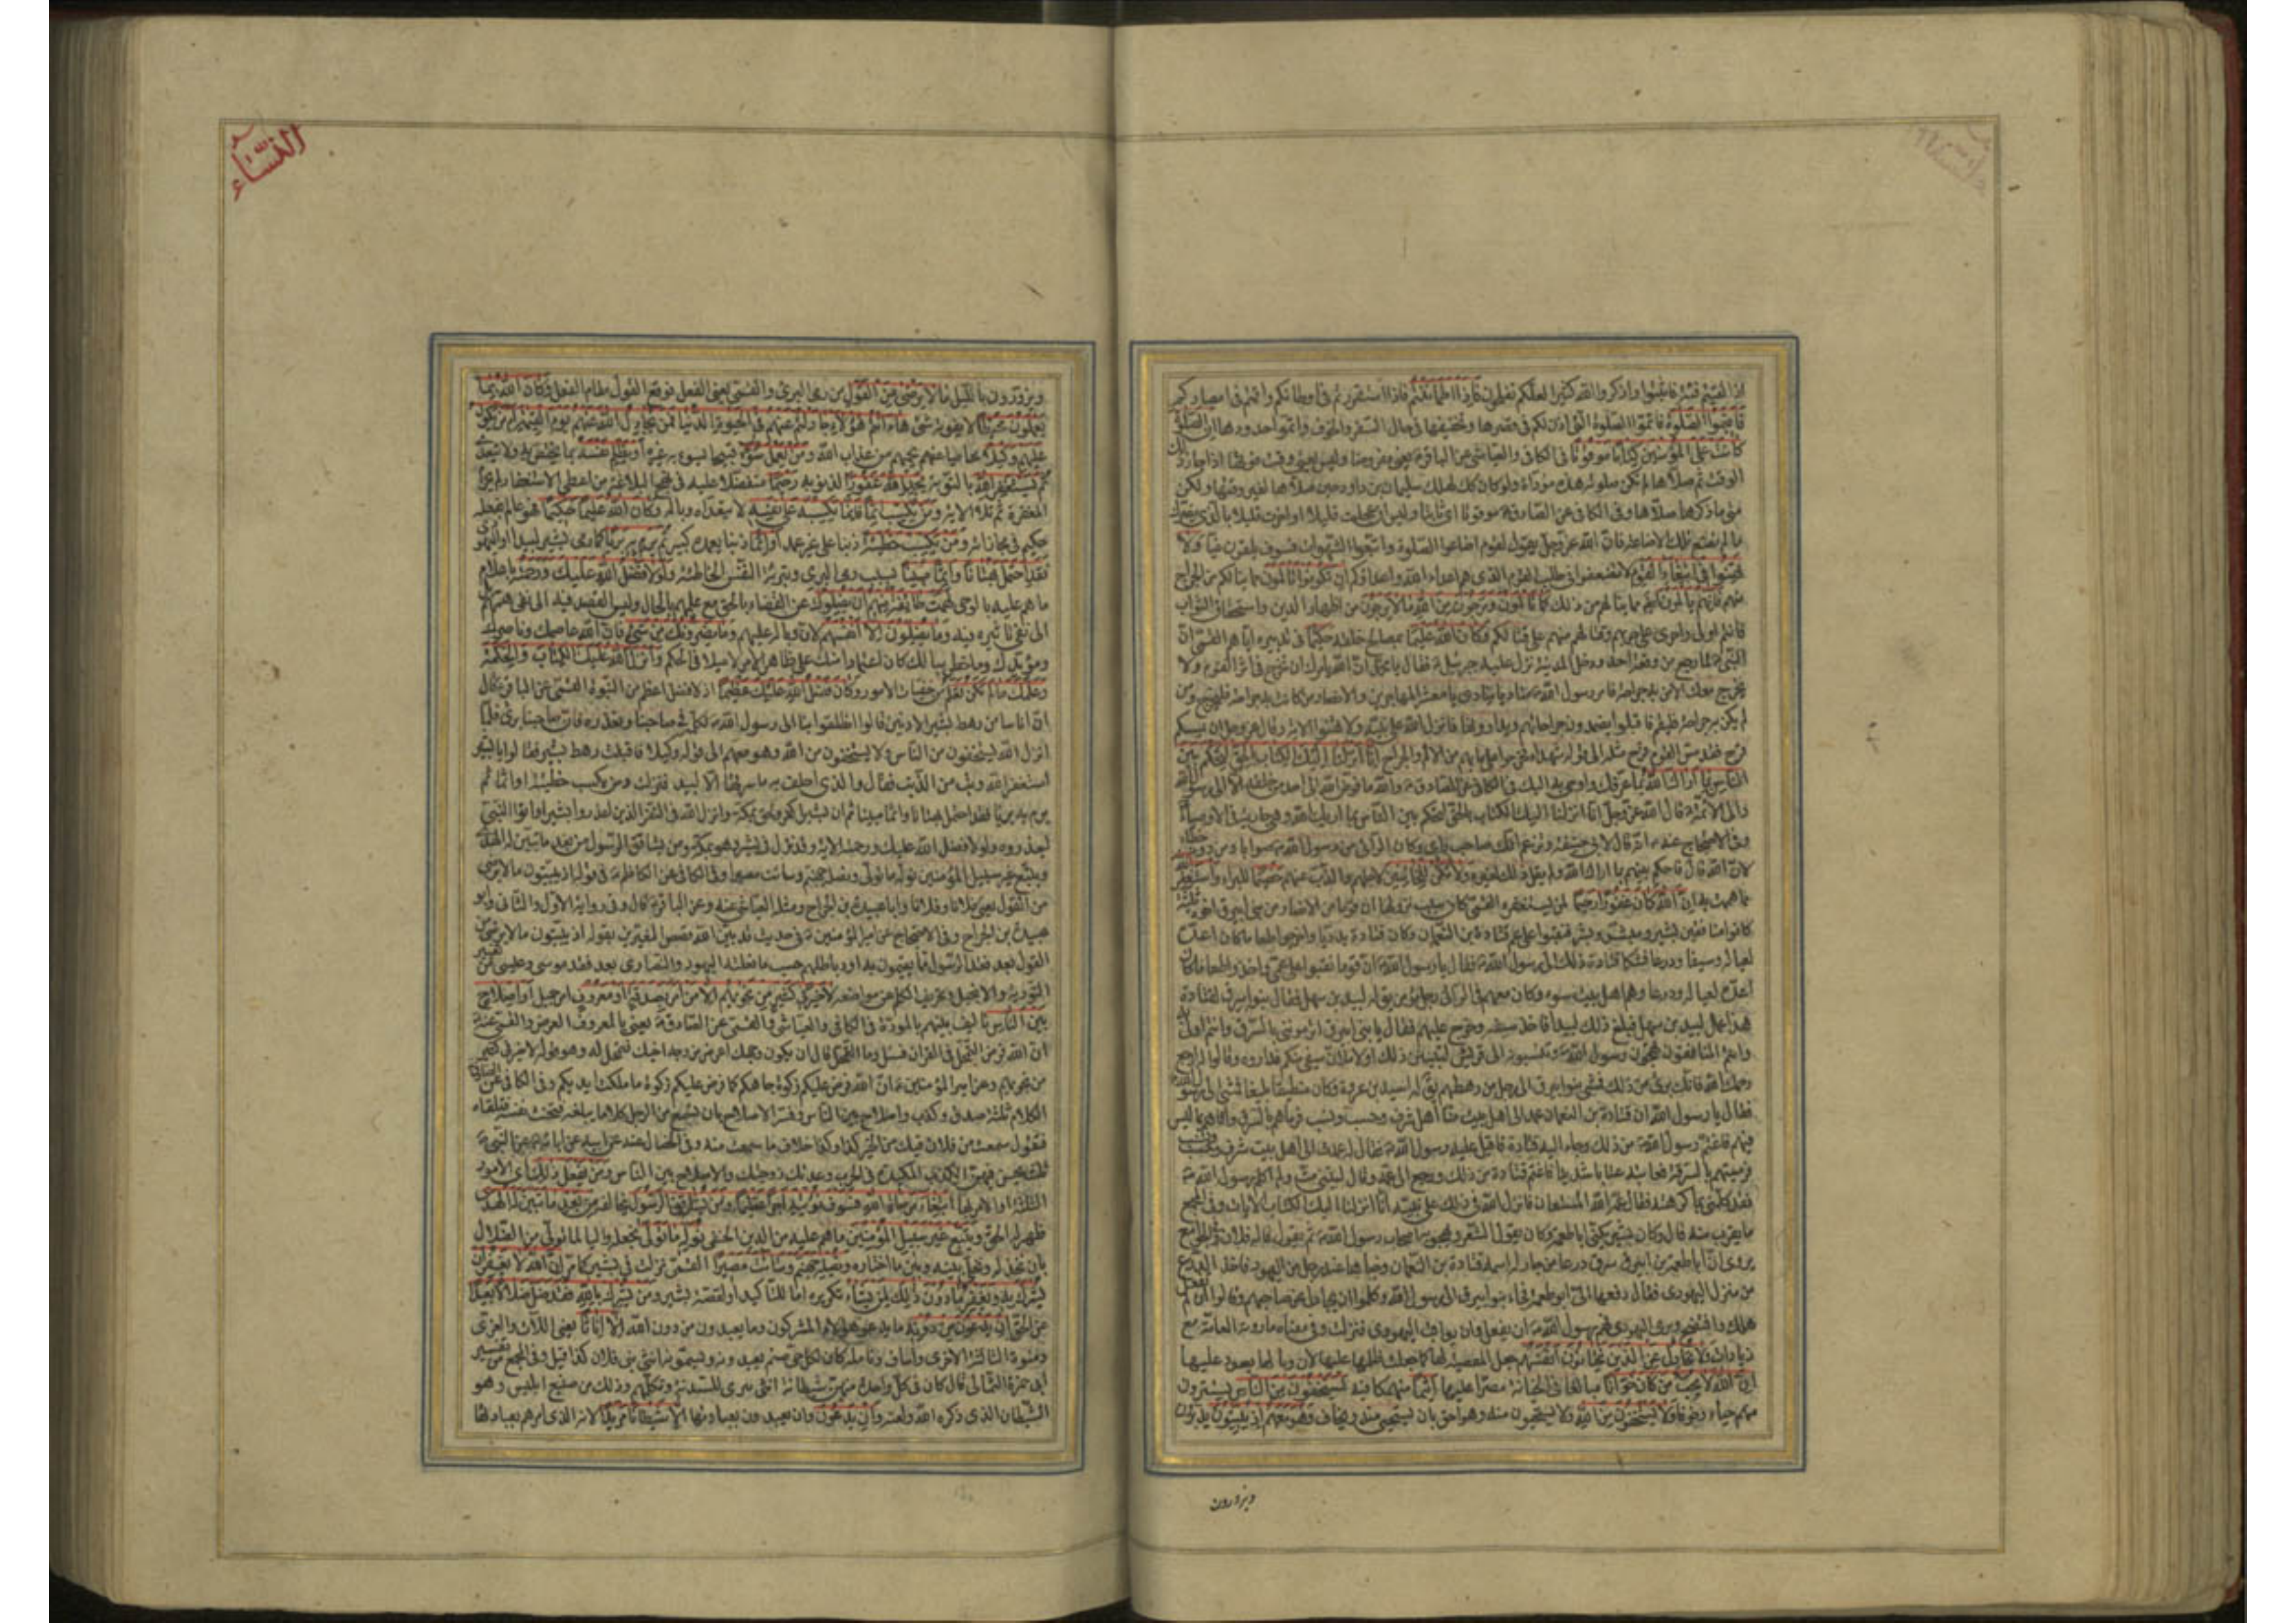 اذا لقيتم فئة فاثبتوا واذكروا الله كثيرا لعلكم تفلحون فاذا اطماننتم فاذا استقررتم فى اوطانكم واقمتم فى امصاركم
فاقيموا الصلوة فاتموا الصلوة التى اذن لكم فى قصرها وتخفيفها فى حال السفر والخوف واتموا حدودها ان الصلوة
كانت على المؤمنين كتابا موقوتا فى الكافى والعياشى عن الباقر يعنى مفروضا وليس يعنى وقت فوتها اذا جاز ذلك
الوقت ثم صلاها لم تكن صلوته هذه مؤداة ولو كان كذلك لهلك سليمان بن داود حين صلاها لغير وقتها ولكن
متى ما ذكرها صلاها وفى الكافى عن الصادق موقوتا اى ثابتا وليس ان عجلت قليلا او اخرت قليلا بالذى يضرك
ما لم تضيع تلك الاضاعة فان الله عز وجل يقول لقوم اضاعوا الصلوة واتبعوا الشهوات فسوف يلقون غيا ولا
تهنوا فى ابتغاء القوم لا تضعفوا فى طلب القوم الذى هم اعداء الله واعداؤكم ان تكونوا تالمون مما ينالكم من الجراح
منهم فانهم يالمون كما تالمون وترجون من الله ما لا يرجون من اظهار الدين واستحقاق الثواب
فانتم اولى واحرى على حربهم وقتالهم منهم على قتالكم وكان الله عليما بمصالح خلقه حكيما فى تدبيره اياهم القمى ان
النبى لما رجع من وقعة احد ودخل المدينة نزل عليه جبرئيل فقال يا محمد ان الله يامرك ان تخرج فى اثر القوم ولا
يخرج معك الا من به جراحة فامر رسول الله مناديا ينادى يا معشر المهاجرين والانصار من كانت به جراحة فليخرج ومن
لم يكن به جراحة فليقم فاقبلوا يضمدون جراحاتهم ويداوونها فانزل الله على نبيه ولا تهنوا الاية وقال عز وجل ان يمسسكم
قرح فقد مس القوم قرح مثله الى قوله شهداء انا انزلنا اليك الكتاب بالحق لتحكم بين
الناس بما اراك الله بما عرفك واوحى به اليك فى الكافى عن الصادق والله ما فوض الله الى احد من خلقه الا الى رسول الله
والى الائمة قال الله عز وجل انا انزلنا اليك الكتاب بالحق لتحكم بين الناس بما اراك الله وهى جارية فى الاوصياء
وفى الاحتجاج عنه انه قال لابى حنيفة وتزعم انك صاحب راى وكان الراى من رسول الله صوابا ومن دونه خطاء
لان الله قال فاحكم بينهم بما اراك الله ولم يقل ذلك لغيره ولا تكن للخائنين لاجلهم والذب عنهم خصيما للبراء واستغفر الله
مما هممت به ان الله كان غفورا رحيما لمن يستغفره القمى كان سبب نزولها ان قوما من الانصار من بنى ابيرق اخوة ثلثة
كانوا منافقين بشير ومبشر وبشر فنقبوا على عم قتادة بن النعمان وكان قتادة بدريا واخرجوا طعاما كان اعده
لعياله وسيفا ودرعا فشكا قتادة ذلك الى رسول الله فقال يا رسول الله ان قوما نقبوا على عمى واخذوا طعاما كان
اعده لعياله ودرعا وهم اهل بيت سوء وكان معهم فى الراى رجل مؤمن يقال له لبيد بن سهل فقال بنو ابيرق لقتادة
هذا عمل لبيد بن سهل فبلغ ذلك لبيدا فاخذ سيفه وخرج عليهم فقال يا بنى ابيرق اترموننى بالسرق وانتم اولى به
وانتم المنافقون تهجون رسول الله وتنسبونه الى قريش لتبينن ذلك او لاملان سيفى منكم فداروه وقالوا له ارجع
رحمك الله فانك برئ من ذلك فمشى بنو ابيرق الى رجل من رهطهم يقال له اسيد بن عروة وكان منطيقا بليغا فمشى الى رسول الله
فقال يا رسول الله ان قتادة بن النعمان عمد الى اهل بيت منا اهل شرف وحسب ونسب فرماهم بالسرق واتاهم بما ليس
فيهم فاغتم رسول الله من ذلك وجاء اليه قتادة فاقبل عليه رسول الله فقال له عمدت الى اهل بيت شرف وحسب ونسب
فرميتهم بالسرقة فعاتبه عتابا شديدا فاغتم قتادة من ذلك ورجع الى عمه وقال ليتنى مت ولم اكلم رسول الله
فقد كلمنى بما كرهته فقال عمه الله المستعان فانزل الله فى ذلك على نبيه انا انزلنا اليك الكتاب الايات وفى المجمع
ما يقرب منه قال وكان بشير يكنى ابا طعمة وكان يقول الشعر ويهجو به اصحاب رسول الله ثم يقول قاله فلان
يروى ان ابا طعمة بن ابيرق سرق درعا من جار له اسمه قتادة بن النعمان وخباها عند رجل من اليهود فاخذ الدرع
من منزل اليهودى فقال دفعها الى ابو طعمة فجاء بنو ابيرق الى رسول الله وكلموا ان يجادل عن صاحبهم وقالوا ان لم تفعل
هلك وافتضح وبرئ اليهودى فهم رسول الله ان يفعل وان يعاقب اليهودى فنزلت وفى معناه ما روته العامة مع
زيادات ولا تجادل عن الذين يختانون انفسهم جعل المعصية لها كما جعلت ظلما عليها لان وبالها يعود عليها
ان الله لا يحب من كان خوانا مبالغا فى الخيانة مصرا عليها اثيما منهمكا فيه يستخفون من الناس يستترون
منهم حياء وخوفا ولا يستخفون من الله ولا يستحيون منه وهو احق بان يستحيى منه ويخاف وهو معهم اذ يبيتون يدبرون
ويزورون
النساء
ويزورون بالليل ما لا يرضى من القول من رمى البرئ والقمى يعنى الفعل فوقع القول مقام الفعل وكان الله بما
يعملون محيطا لا يفوته شئ ها انتم هؤلاء جادلتم عنهم فى الحيوة الدنيا فمن يجادل الله عنهم يوم القيمة ام من يكون
عليهم وكيلا محاميا عنهم يحميهم من عذاب الله ومن يعمل سوء قبيحا يسوء به غيره او يظلم نفسه بما يختص به ولا يتعداه
ثم يستغفر الله بالتوبة يجد الله غفورا لذنوبه رحيما متفضلا عليه فى نهج البلاغة من اعطى الاستغفار لم يحرم
المغفرة ثم تلا الاية ومن يكسب اثما فانما يكسبه على نفسه لا يتعداه وباله وكان الله عليما حكيما فهو عالم بفعله
حكيم فى مجازاته ومن يكسب خطيئة ذنبا على غير عمد او اثما ذنبا يعمده كبشير ثم يرم به بريئا كما رمى بشير لبيدا او اليهودى
فقد احتمل بهتانا واثما مبينا بسبب رمى البرئ وتبرئة النفس الخاطئة ولولا فضل الله عليك ورحمته باعلام
ما هم عليه بالوحى لهمت طائفة منهم ان يضلوك عن القضاء بالحق مع علمهم بالحال وليس القصد فيه الى نفى همهم بل
الى نفى تاثيره فيه وما يضلون الا انفسهم لان وباله عليهم وما يضرونك من شئ فان الله عاصمك وناصرك
ومؤيدك وما خطر ببالك كان اعتمادا منك على ظاهر الامر لا ميلا فى الحكم وانزل الله عليك الكتاب والحكمة
وعلمك ما لم تكن تعلم من خفيات الامور وكان فضل الله عليك عظيما اذ لا فضل اعظم من النبوة القمى عن الباقر قال
ان اناسا من رهط بشير الادنين قالوا انطلقوا بنا الى رسول الله نكلمه فى صاحبنا ونعذره فان صاحبنا برئ فلما
انزل الله يستخفون من الناس ولا يستخفون من الله وهو معهم الى قوله وكيلا فاقبلت رهط بشير فقالوا يا بشير
استغفر الله وتب من الذنب فقال والذى احلف به ما سرقها الا لبيد فنزلت ومن يكسب خطيئة او اثما ثم
يرم به بريئا فقد احتمل بهتانا واثما مبينا ثم ان بشيرا كفر ولحق بمكة وانزل الله فى النفر الذين اعذروا بشيرا واتوا النبى
ليعذروه ولولا فضل الله عليك ورحمته الاية ونزل فى بشير وهو بمكة ومن يشاقق الرسول من بعد ما تبين له الهدى
ويتبع غير سبيل المؤمنين نوله ما تولى ونصله جهنم وساءت مصيرا وفى الكافى عن الكاظم فى قوله اذ يبيتون ما لا يرضى
من القول يعنى فلانا وفلانا وابا عبيدة بن الجراح ومثله العياشى عنه وعن الباقر قال وفى رواية الاول والثانى وابو
عبيدة بن الجراح وفى الاحتجاج عن امير المؤمنين فى حديث قد بين الله قصص المغيرين بقوله اذ يبيتون ما لا يرضى من
القول بعد فقد الرسول ما يقيمون به اود باطلهم حسب ما فعلته اليهود والنصارى بعد فقد موسى وعيسى من تغيير
التورية والانجيل وتحريف الكلم عن مواضعه لا خير فى كثير من نجويهم الا من امر بصدقة او معروف امر جميل او اصلاح
بين الناس تاليف بينهم بالمودة فى الكافى والعياشى والقمى عن الصادق يعنى بالمعروف القرض والقمى عنه
ان الله فرض التحمل فى القران فسئل وما التحمل قال ان يكون وجهك اعرض من وجه اخيك فتحمل له وهو قوله لا خير فى كثير
من نجويهم وعن امير المؤمنين ان الله فرض عليكم زكوة جاهكم كما فرض عليكم زكوة ما ملكت ايديكم وفى الكافى عن الصادق
الكلام ثلثة صدق وكذب واصلاح بين الناس وفسر الاصلاح بان تسمع من الرجل كلاما يبلغه فتخبث نفسه فتلقاه
فتقول سمعت من فلان فيك من الخير كذا وكذا خلاف ما سمعت منه وفى الخصال عنه عن ابيه عن ابائه عن النبى
ثلث يحسن فيهن الكذب المكيدة فى الحرب وعدتك زوجتك والاصلاح بين الناس ومن يفعل ذلك اى الامور
الثلثة او الامر بها ابتغاء مرضات الله فسوف نؤتيه اجرا عظيما ومن يشاقق الرسول يخالفه من بعد ما تبين له الهدى
ظهر له الحق ويتبع غير سبيل المؤمنين ما هم عليه من الدين الحنفى نوله ما تولى نجعله واليا لما تولى من الضلال
بان نخذله ونخلى بينه وبين ما اختاره ونصله جهنم وساءت مصيرا القمى نزلت فى بشير كما مر ان الله لا يغفر ان
يشرك به ويغفر ما دون ذلك لمن يشاء تكريره اما للتاكيد او لقصة بشير ومن يشرك بالله فقد ضل ضلالا بعيدا
عن الحق ان يدعون من دونه ما يدعو هؤلاء المشركون وما يعبدون من دون الله الا اناثا يعنى اللات والعزى
ومنوة الثالثة الاخرى واساف ونائلة كان لكل حى صنم يعبدونه ويسمونه انثى بنى فلان كذا قيل وفى المجمع من تفسير
ابى حمزة الثمالى قال كان فى كل واحدة منهن شيطانة انثى تترى للسدنة وتكلمهم وذلك من صنيع ابليس وهو
الشيطان الذى ذكره الله ولعنه وان يدعون وان يعبدون بعبادتها الا شيطانا مريدا لانه الذى امرهم بعبادتها